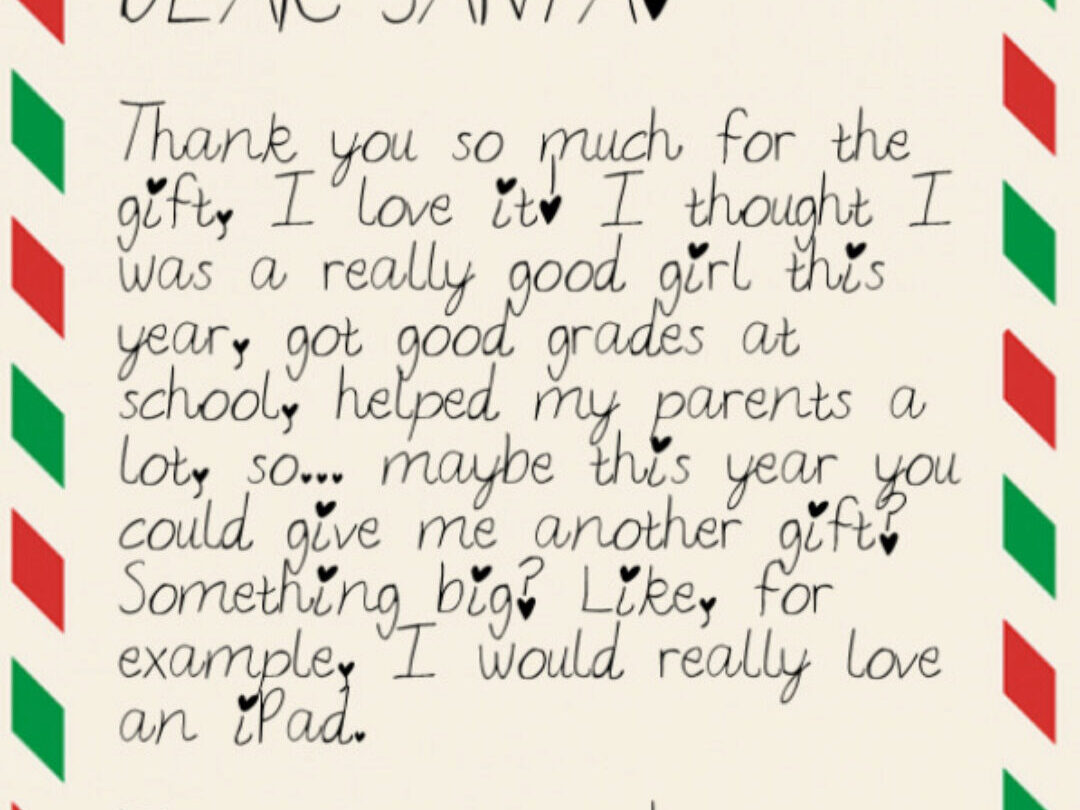 DEAR SANTA
Thank you so much for the
gift, I love it! I thought I
was a really good girl this
year, got good grades at
school, helped my parents a
lot, so... maybe this year you
could give me another gift?
Something big? Like, for
example, I would really love
an iPad.